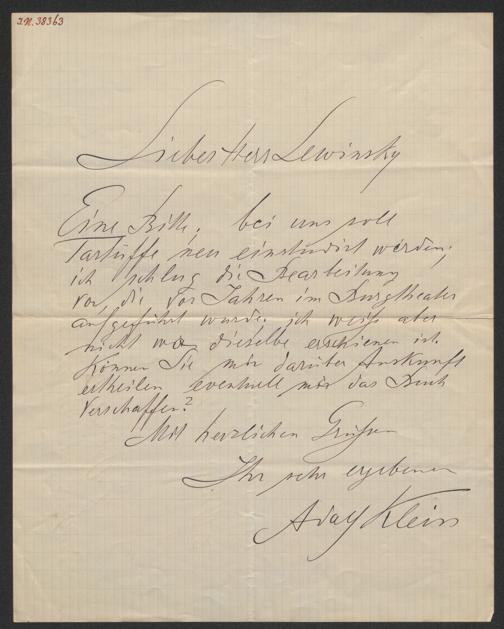 I.N. 38363
Lieber Herr Lewinsky
Eine Bitte. bei uns soll
Tartüffe neu einstudirt werden.
ich schlug die Bearbeitung
vor, die vor Jahren im Burgtheater
aufgeführt wurde. ich weiß aber
nicht wo dieselbe erschienen ist.
Können Sie mir darüber Auskunft
ertheilen eventuell mir das Buch
verschaffen?
Mit herzlichen Grüßen
Ihr sehr ergebener
Adolf Klein